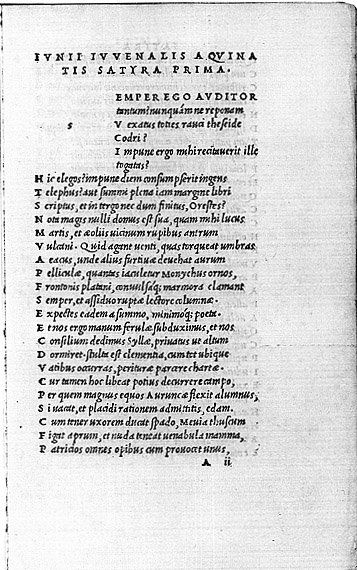 IVNII IVVENALIS AQVINA
TIS SATYRA PRIMA.
EMPER EGO AVDITOR
tantum? nunquám ne reponam
s V exatus toties rauci theseide
Codri?
I mpune ergo mihi recitauerit ille
togatas?
H ic elegos? impune diem consumpserit ingens
T elephus? aut summi plena iam margine libri
S criptus, et in tergo nec dum finitus, Orestes?
N ota magis nulli domus est sua, quam mihi lucus
M artis, et æoliis uicinum rupibus antrum
V ulcani. Quid agant uenti, quas torqueat umbras
A eacus, unde alius furtiuæ deuehat aurum
P elliculæ, quantas iaculetur Monychus ornos,
F rontonis platani, conuulsaq; marmora clamant
S emper, et assiduo ruptæ lectore columnæ.
E xpectes eadem a summo, minimoq; poeta.
E t nos ergo manum ferulæ subduximus, et nos
C onsilium dedimus Syllæ, priuatus ut altum
D ormiret. stulta est clementia, cum tot ubique
V atibus occurras, perituræ parcere chartæ.
C ur tamen hoc libeat potius decurrere campo,
P er quem magnus equos Auruncæ flexit alumnus,
S i uacat, et placidi rationem admittitis, edam.
C um tener uxorem ducat spado, Meuia thuscum
F igat aprum, et nuda teneat uenabula mamma,
P atricios omnes opibus cum prouocet unus,
A ii